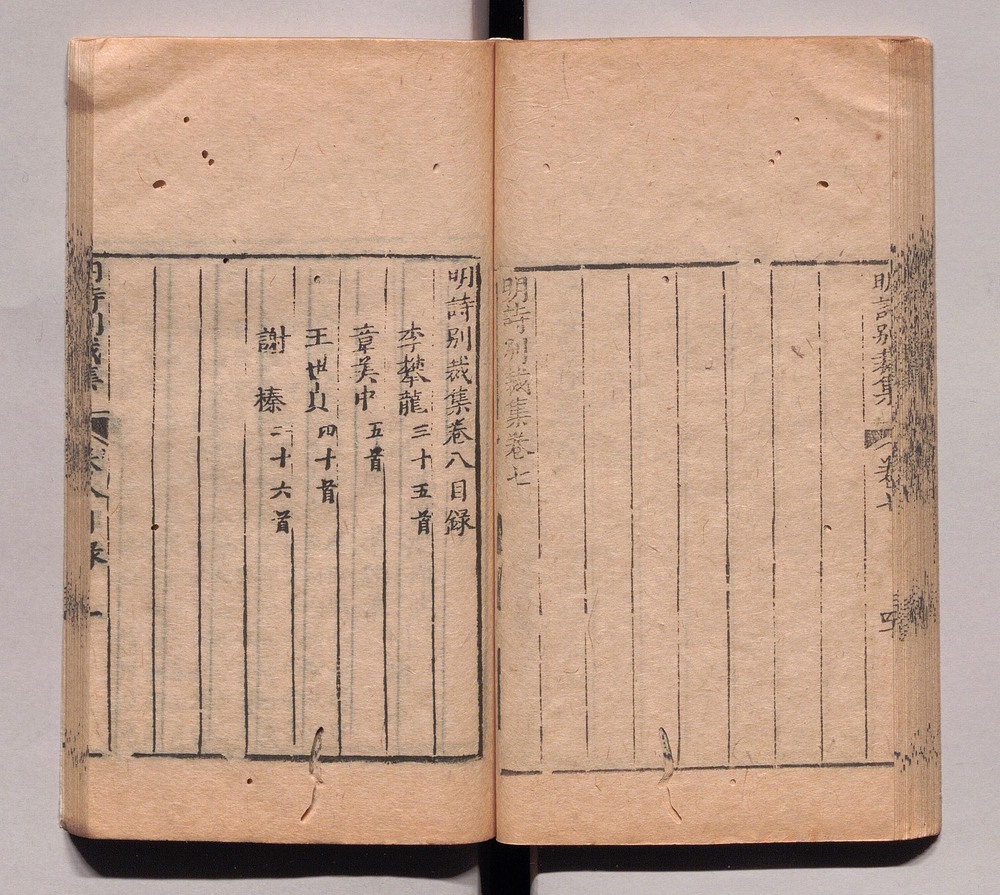 明詩别裁集
卷七
明詩别裁集卷七
明詩别裁集卷八目録
李攀龍三十五首
章美中五首
王世貞四十首
謝榛二十六首
卷八目録
一